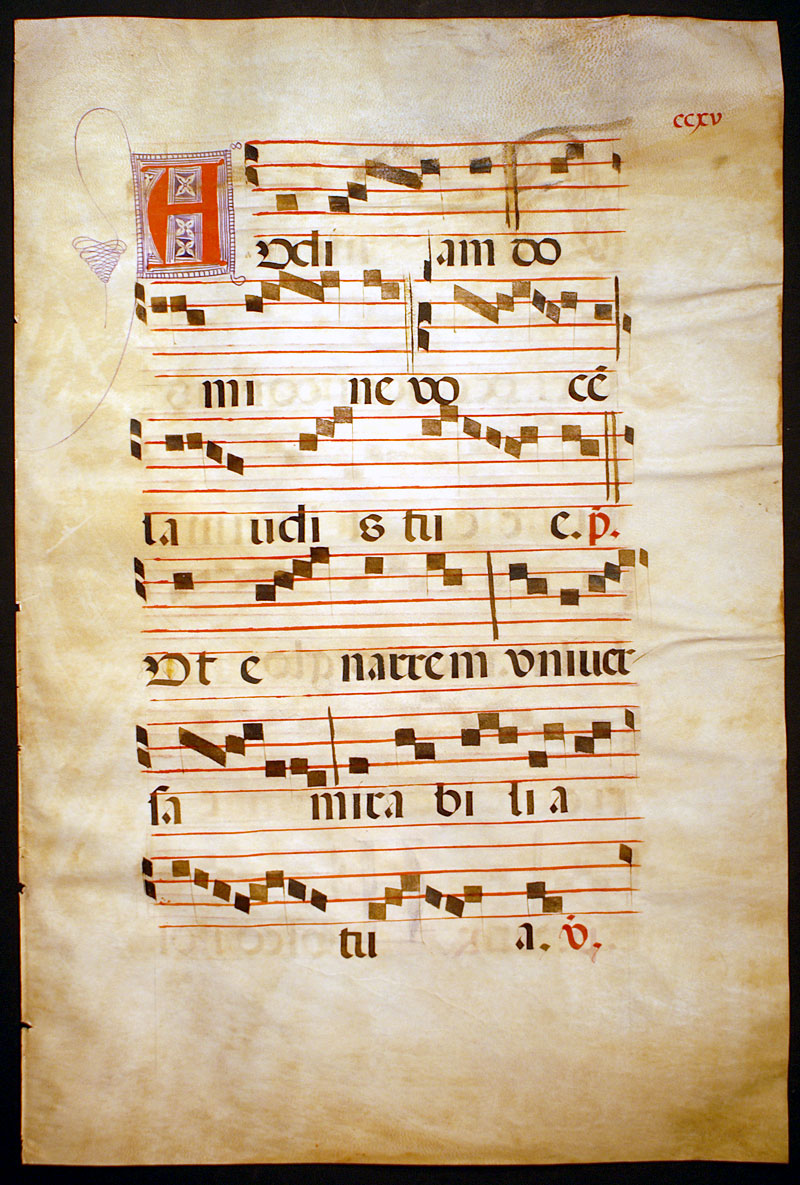 ccxv
Audi am do
mi ne vo cē
la udi s tu e. p̄.
Ut e narrem vniuer
sa mira bi li a
tu a. v̄.